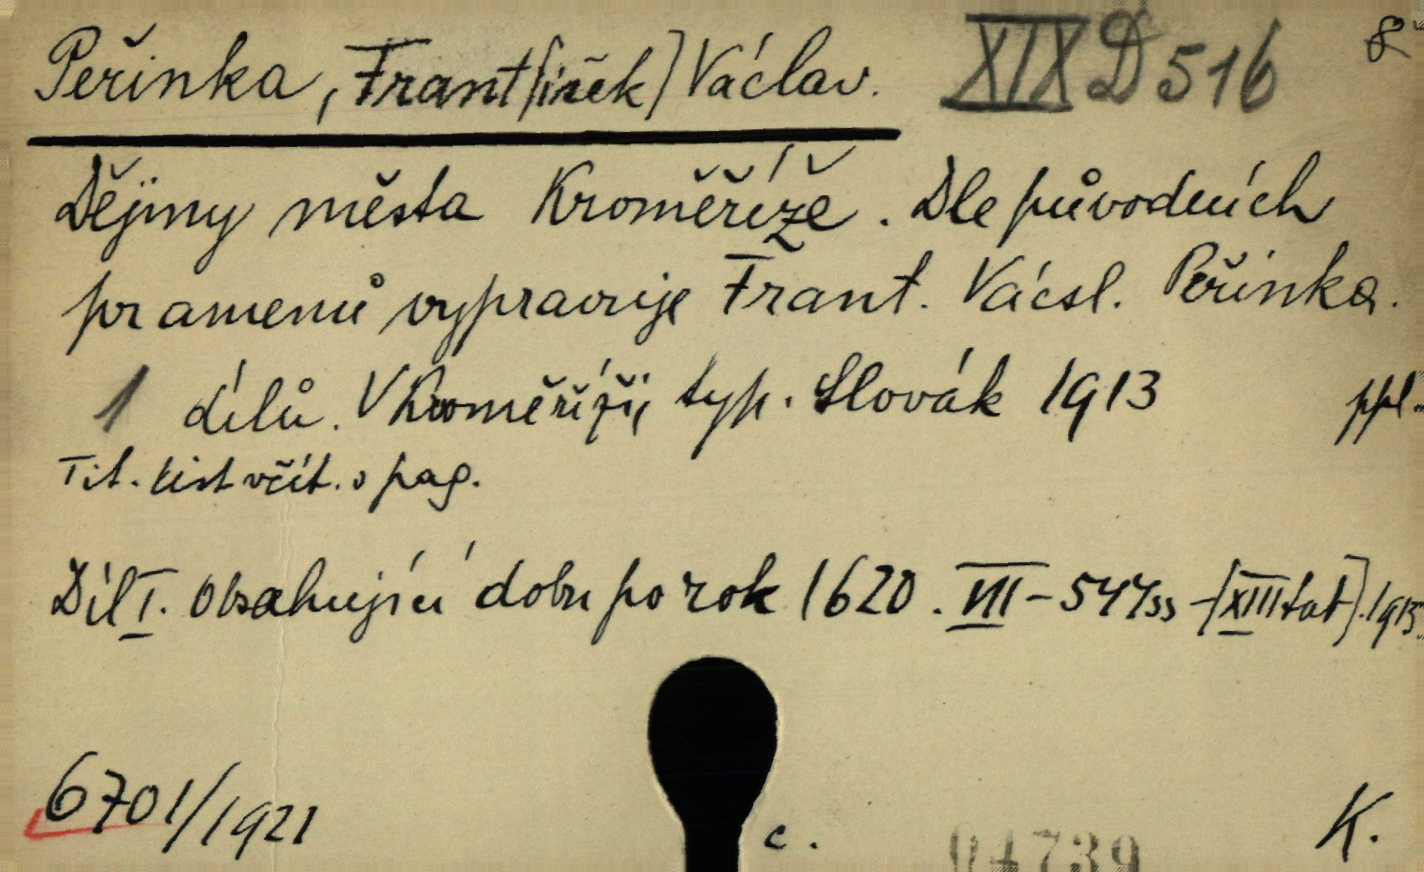 Peřinka, Frant[išek] Václav. XIX D 516 8°
Dějiny města Kroměříže. Dle původních
pramenů vypravuje Frant. Václ. Peřinka.
1 dílů. V Kroměříži, typ. Slovák 1913 ppl.
Tit. list včít. v pag.
Díl I. obsahující dobu po rok 1620. VIII - 544 ss - [XIII tab]. 1913.
6701/1921
c. 04739 K.